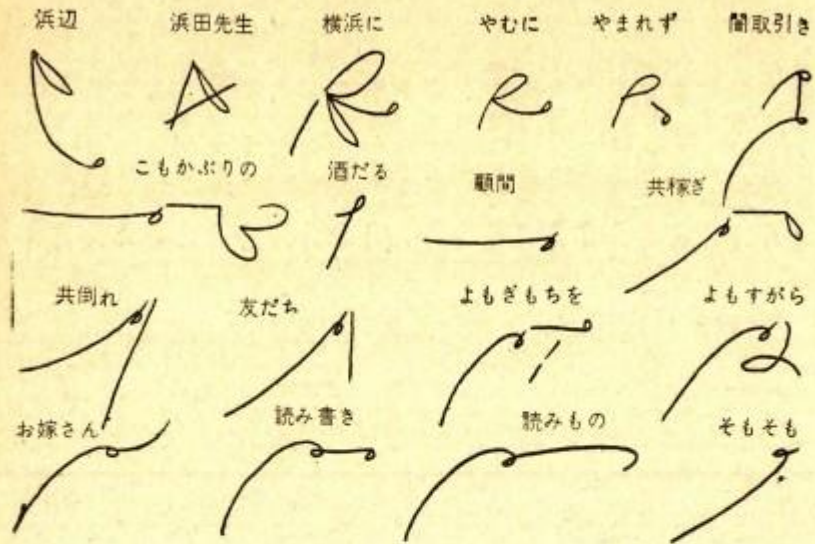 浜辺 浜田先生 横浜に やむに やまれず 闇取引き
こもかぶりの 酒だる 顧問 共稼ぎ
共倒れ 友だち よもぎもちを よもすがら
お嫁さん 読み書き 読みもの そもそも